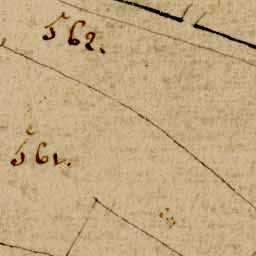 562.
561.